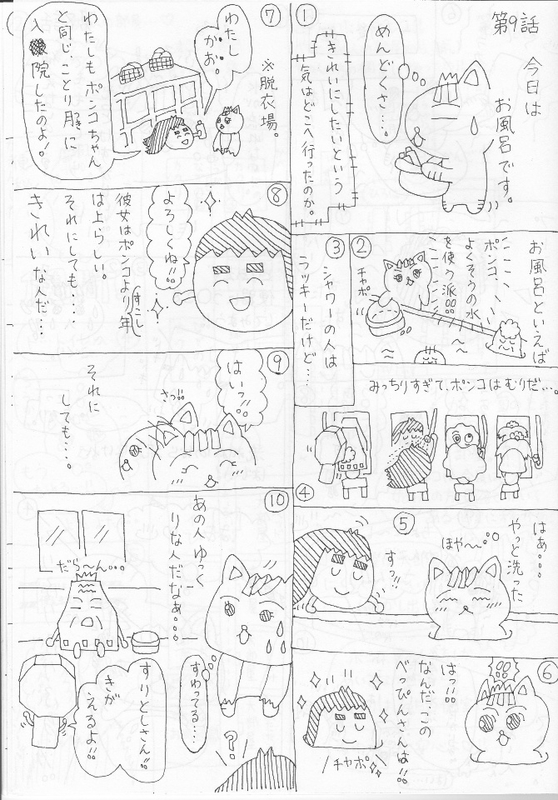 第9話
今日は
お風呂です。
①
めんどくさ…。
きれいにしたいという
気はどこへ行ったのか。
②
お風呂といえば
ポンコ、
よくそうの水
を使う派!!
チャポ
③
シャワーの人は
ラッキーだけど…
みっちりすぎて、ポンコはむりだ…。
④
⑤
はぁ…
やっと洗った
ほや〜
すっ!!
⑥
はっ!!
なんだ、この
べっぴんさんは!!
チャポ
⑦
※脱衣場。
わたし
かお。
わたしもポンコちゃん
と同じ、ことり月に
入院したのよ!。
⑧
よろしくね!!
彼女はポンコよりすこし年
は上らしい。
それにしても…
きれいなんだ…
⑨
はいっ!!
さっ!!
それに
しても…。
⑩
あの人ゆっく
りな人だなぁ…
だら〜ん…
すわってる…
すりとしさん!!
きが
えるよ!!
?